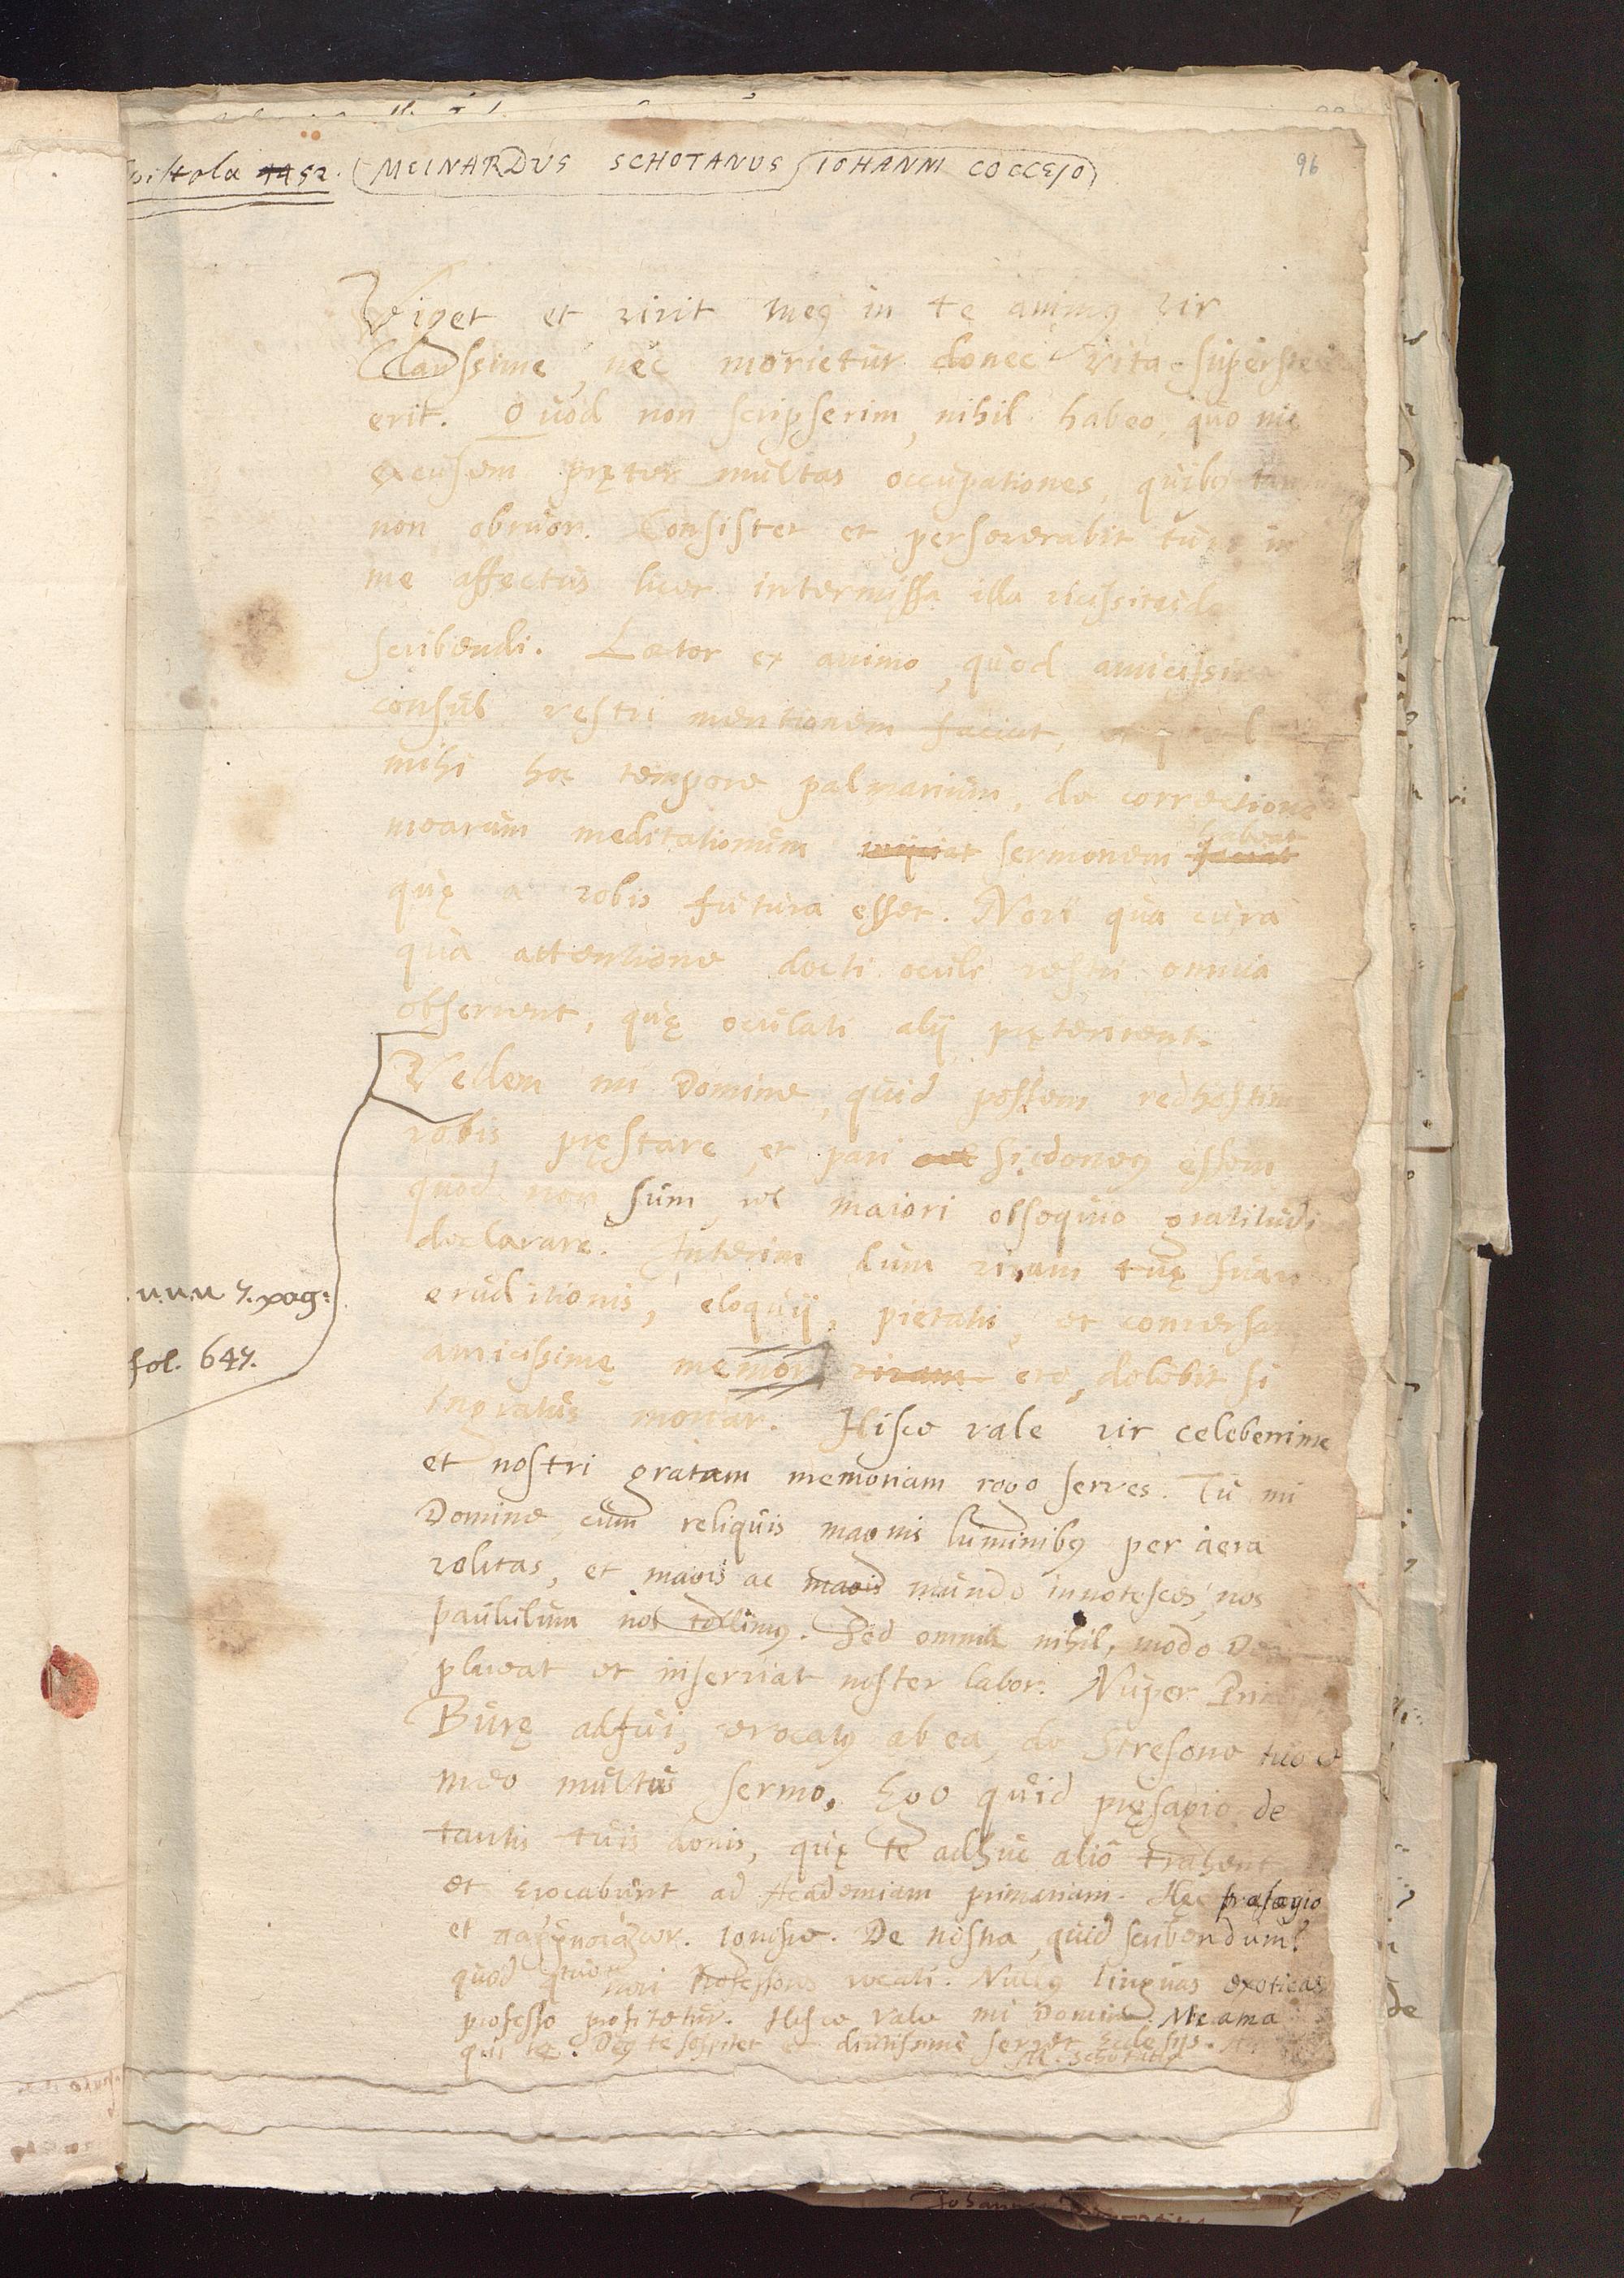 96
Epistola 52. MEINARDUS SCHOTANUS IOHANNI COCCEJO
Viget et vivit meq in te animq vir
Clarissime, nec morietur donec vita superstes
erit. Quod non scripserim, nihil habeo, quo me
excusem pręter multas occupationes, quibq
non obruor. Consistet et perseverabit tuus in
me affectus licet intermissa illa vicissitudo
scribendi. Lætor ex animo, quod amicissime
consul vestri mentionem faciat, et
mihi hoc tempore palmarium, de correctione
mearum meditationum injiciat sermonem faciat habeat
quę a vobis futura esset. Novi qua cura
qua attentione docti oculi vestri omnia
observent, quę oculati alij pręterirent.
Vellem mi Domine, quid possem redhostim
vobis pręstare et pari si idoneq essem
quod non sum, vel maiori obsequio gratitudi
declarare. Interim dum vivam tuę
eruditionis, eloquij, pietatis, et conversa
amicissimę memor vivam ero, dolebit si
ingratus moriar. Hisce vale vir celeberrime
et nostri gratam memoriam rogo serves. Tu mi
Domine, cum reliquis magnis luminibq per aera
volitas, et magis ac magis mundo innotesces, nos
paululum nos tollimq. Sed omnia nihil, modo Deo
placeat et inserviat noster labor. Nuper
Burę adfui, evocatq ab ea, de Stresone tuo et
meo multus sermo. Ego quid pręsagio de
tantis tuis donis, quę te adhuc aliò trahent
et evocabunt ad Academiam primariam. Hęc præsagio
et Ignosce. De nostra, quid scribendum?
quod novi Professores vocati. Nullq linguas exoticas
professo profitetur. Hisce vale mi Domine. Me ama
qui te. Deq te sospitet et diutissime servet Ecclesijs.
M. Schotanus
7. pag:
fol. 647.